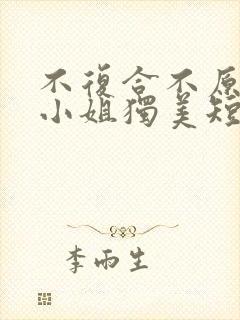 不復合不原
小姐獨美短
李雨生